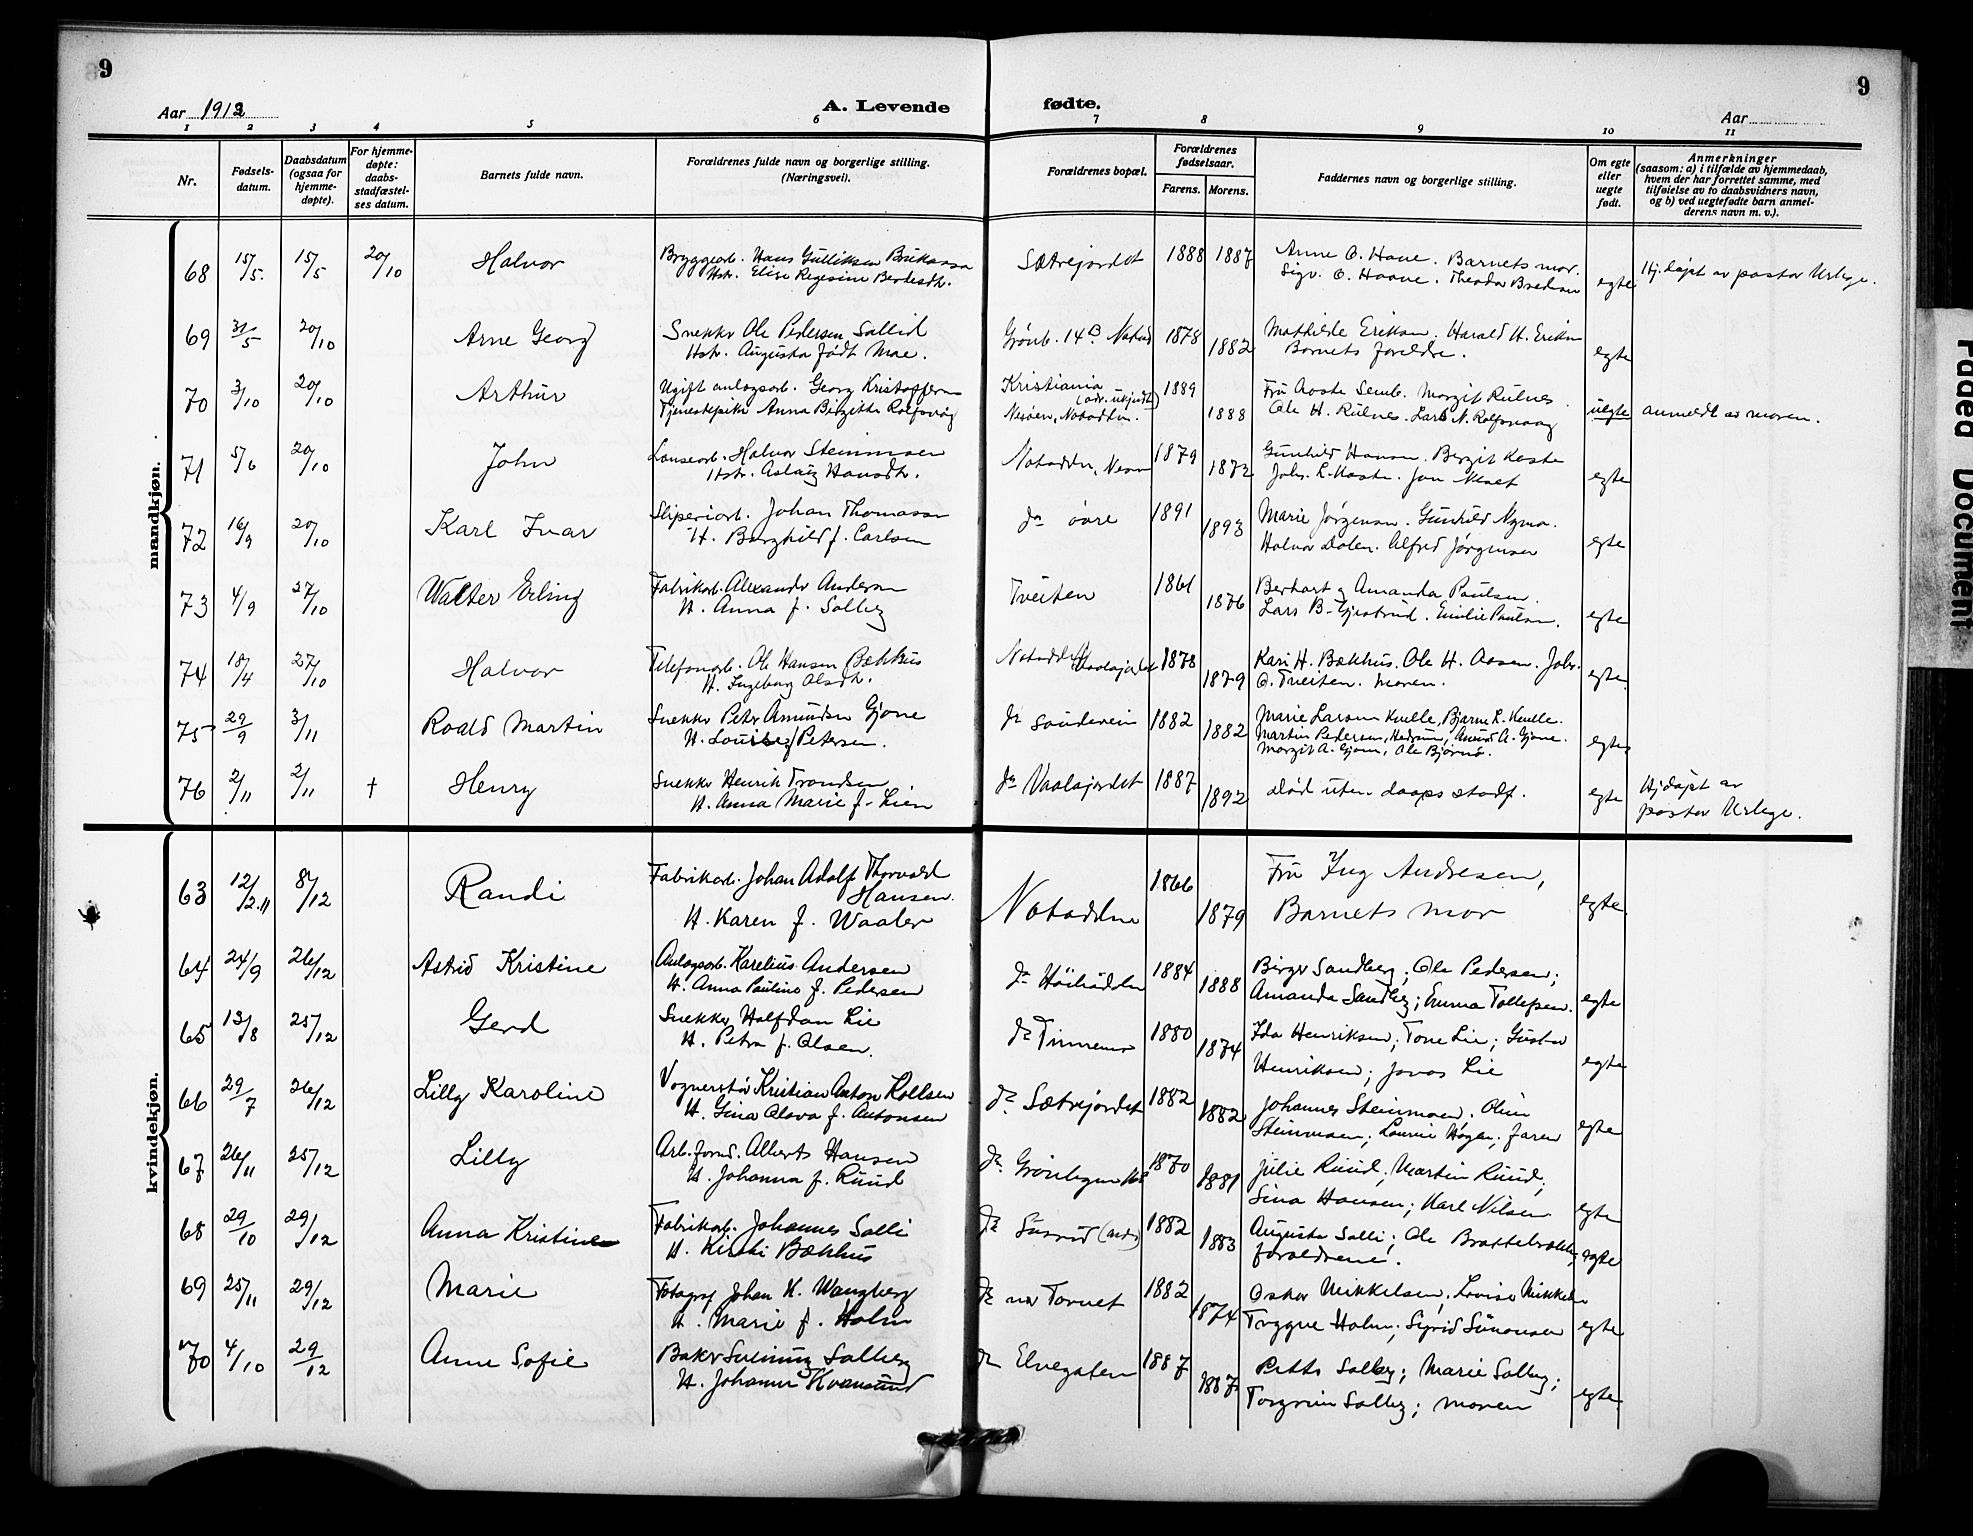 9
9
Aar 1912
A. Levende fødte.
Aar
1 2 3 4 5 6 7 8 9 10 11
Nr.
Fødsels-
datum.
Daabsdatum
(ogsaa for
hjemme-
døpte).
For hjemme-
døpte:
daabs-
stadfæstel-
ses datum.
Barnets fulde navn.
Forældrenes fulde navn og borgerlige stilling.
(Næringsvei).
Forældrenes bopæl.
Forældrenes
fødselsaar.
Farens. Morens.
Faddernes navn og borgerlige stilling.
Om egte
eller
uegte
født.
Anmerkninger
(saasom: a) i tilfælde av hjemmedaab,
hvem der har forrettet samme, med
tilføielse av to daabsvidners navn,
og b) ved uegtefødte barn anmel-
derens navn m. v.).
mandkjøn.
68 15/5. 15/5 20/10 Halvor Bryggearb. Hans Gulliksen Sætrejordet 1888 1887 Anne O. Haave. Barnets mor.
Hstr. Elise Regesine Sigv. O. Haave. egte Hj. døpt av pastor Urlege.
69 31/5 20/10 Arne Georg Snekker Ole Pedersen Sallid Grönb. 14B 1878 1882 Mathilde Eriksen. Harald H.
Hstr. Augusta født Moe. Barnets foreldre. egte
70 3/10 20/10 Arthur Ugift anlagsarb. Georg Kristoffersen Kristiania (adr. ukjendt) 1889
Tjenestepike Anna Birgitte 1888 Fru Aaste Semb. Margit Rulnes.
Ole H. Rulnes. Lars N. uegte anmeldt av moren.
71 5/6 20/10 John Halvor Steinmoen Notodden, 1879 1872 Gunhild Hansen. Birgit Kaste
Hstr. Aslaug Hansdtr. Johs. L. Kaste. Jon egte
72 16/9 20/10 Karl Ivar Sliperiarb. Johan Thomassen do øvre 1891 1893 Marie Jørgensen. Gunhild
H. Borghild f. Carlsen Halvor Dalen. Alfred Jørgensen egte
73 4/9 27/10 Walter Erling Fabrikarb. Alexander Andersen Tveiten 1861 1876 Berhart og Amanda Paulsen.
H. Anna f. Solberg Lars B. Emilie Paulsen. egte
74 18/4 27/10 Halvor Telefonarb. Ole Hansen Bækkhus Notodden 1878 1879 Kari H. Bækkhus. Ole H. Aasen. Johs.
H. Ingeborg Olsdtr. O. Tveiten. Moren. egte.
75 29/9 3/11 Roald Martin Snekker Peter Amundsen Gjone do 1882 1882 Marie Larsen Knelle, Bjarne L. Knelle.
H. Louise f Petersen. Martin Pedersen, Amund A. Gjone.
Margit A. Gjone, Ole Bjørnø. egte
76 2/11 2/11 † Henry Snekker Henrik Trondsen do Vaalajordet 1887 1892 død uten daaps stadf. egte Hjdøpt av
H. Anna Marie f. Lien pastor Urlege.
kvindekjøn.
63 12/2.11 8/12 Randi Fabrikarb. Johan Adolf Thorvald Hansen. Notodden 1866 1879 Fru Ing Andresen,
H. Karen f. Waaler Barnets mor egte.
64 24/9 26/12 Astrid Kristine Anlagsarb. Karelius Andersen do 1884 1888 Birger Sandberg; Ole Pedersen;
H. Anna Pauline f. Pedersen Amanda Sandberg; Emma Tollefsen. egte
65 13/8 25/12 Gerd Snekker Halfdan Lie do Tinnemo 1880 1874 Ida Henriksen; Tone Lie; Gustav
H. Petra f. Olsen. Henriksen; Jonas Lie egte
66 29/7 26/12 Lilly Karoline Kristian Anton Kollsen do Sætrejordet 1882 1882 Johannes Steinmoen. Olene
H. Gina Olava f. Antonsen Steinmoen; Laurine faren egte
67 26/11 25/12 Lilly Arb. form. Alberts Hansen do 1870 1881 Julie Ruud; Martin Ruud;
H. Johanna f. Ruud Sina Hansen; Karl Nilsen egte
68 29/10 29/12 Anna Kristine Fabrikarb. Johannes Salli do 1882 1883 Augusta Salli; Ole
H. Kirsti Bækkhus foreldrene. egte
69 25/11 29/12 Marie Fotograf Johan H. Wangberg do 1882 1874 Oskar Mikkelsen, Lovise
H. Marie f. Holm Trygve Holm; Sigrid Simonsen egte
70 4/10 29/12 Anne Sofie Baker Solberg do Elvegaten 1887 1887 Solberg; Marie Solberg;
H. Johanne Kvamsund Torgrim Solberg; moren egte.
Faded Document